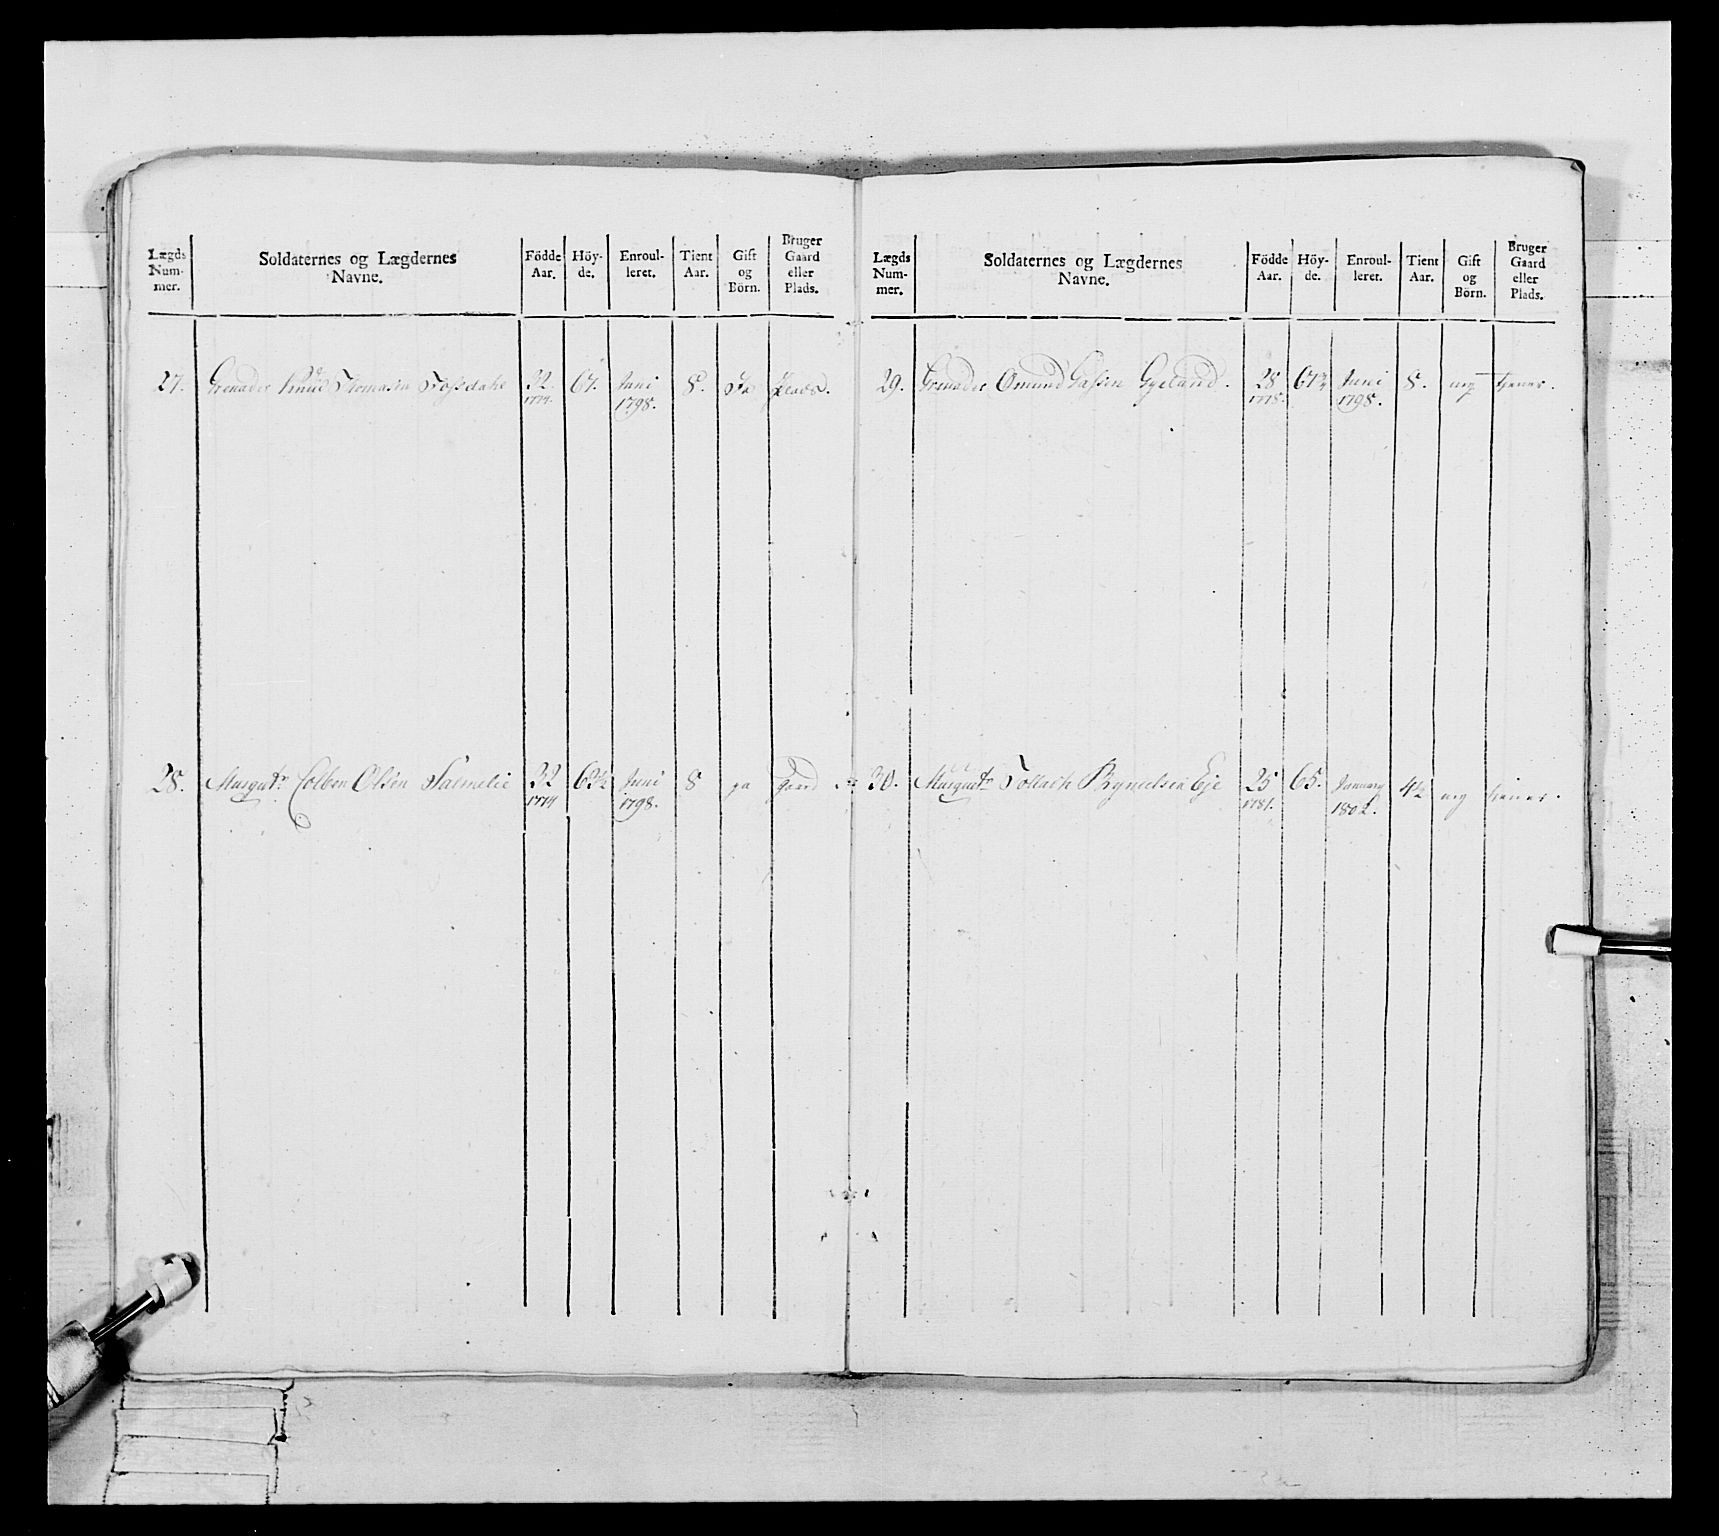 Lægds Num- mer. Soldaternes og Lægdernes Navne. Födde Aar. Höy- de. Enroul- leret. Tient Aar. Gift og Börn. Bruger Gaard eller Plads.
27. Grenader Knud Thomasen Fossdahl 32. 1774. 67. Juni 1798. 8. Ja Plads.
28. Musqutr Colben Olsen 32 1774 63½ Juni 1798. 8 ja Gaard
Lægds Num- mer. Soldaternes og Lægdernes Navne. Födde Aar. Höy- de. Enroul- leret. Tient Aar. Gift og Börn. Bruger Gaard eller Plads.
29. Grenader Omund Gyeland. 28 1778. Juni 1798. 8. ney tjener.
30. Musqutr Tollach Eje 25 1781. 65. January 1802. 4½ ney tjener.